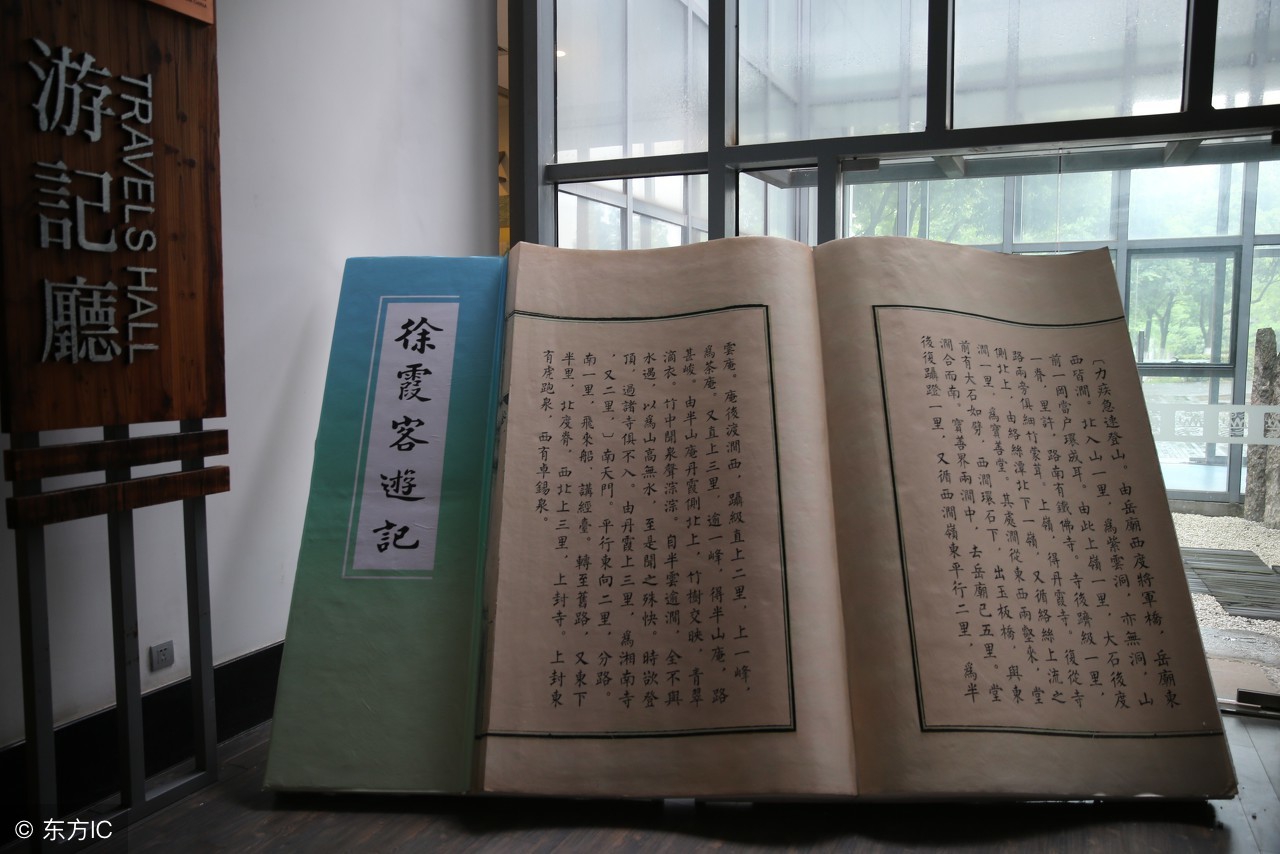 游記廳
TRAVELS HALL
徐霞客遊記
〔力疾急速登山。由岳廟西度將軍橋，岳廟東
西皆澗。北入山一里，爲紫雲洞，亦無洞，山
前一岡當户環成耳。由此上嶺一里，大石後度
一脊，里許，路南有鐵佛寺。寺後躋級一里，
路兩旁俱細竹蒙茸。上嶺，得丹霞寺。復從寺
側北上，由絡絲潭北下一嶺，又循絡絲上流之
澗一里，爲寶善堂。其處澗從東西兩壑來，堂
前有大石如劈，西澗環石下，出玉板橋，與東
澗合而南。寶善界兩澗中，去岳廟已五里。堂
後復躡蹬一里，又循西澗嶺東平行二里，爲半
雲庵。庵後渡澗西，躡級直上二里，上一峰，
爲茶庵。又直上三里，逾一峰，得半山庵，路
甚峻。由半山庵丹霞側北上，竹樹交映，青翠
滴衣。竹中聞泉聲淙淙。自半雲逾澗，全不與
水遇，以爲山高無水，至是聞之殊快。時欲登
頂，過諸寺俱不入。由丹霞上三里，爲湘南寺
，又二里，〕南天門。平行東向二里，分路。
南一里，飛來船、講經臺。轉至舊路，又東下
半里，北度脊，西北上三里，上封寺。上封東
有虎跑泉，西有卓錫泉。
© 东方IC